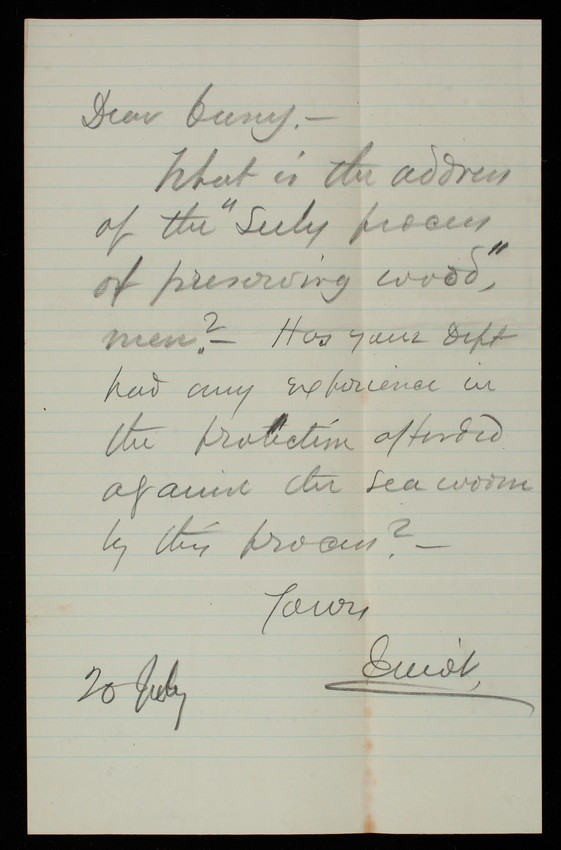 Dear Casey. —
What is the address
of the "Seely process
of preserving wood,"
men? — Has your Dept
had any experience in
the protection afforded
against the sea worm
by this process? —
Yours
20 July